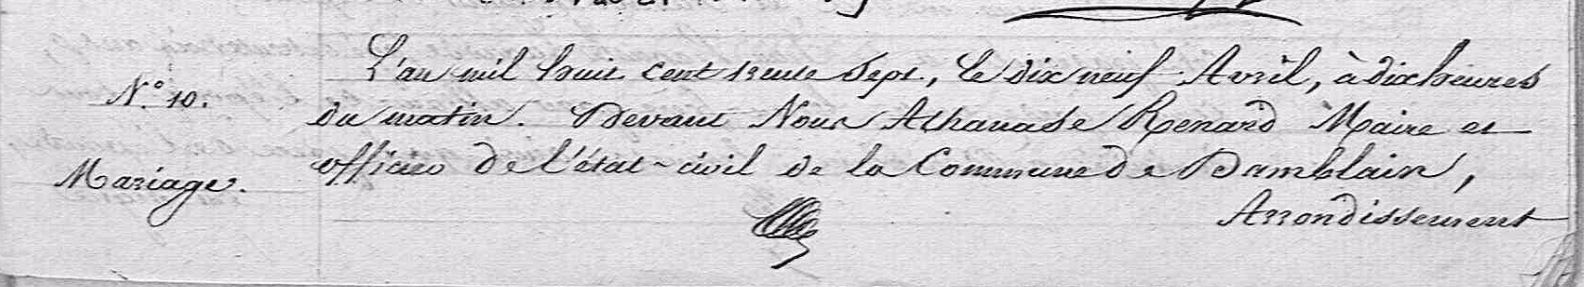 L'an mil huit cent trente Sept, le dix neuf Avril, à dix heures
N.° 10.
du matin. Devant Nous Athanase Renard Maire et
officier de l'état-civil de la Commune de Damblain,
Mariage.
Arrondissement